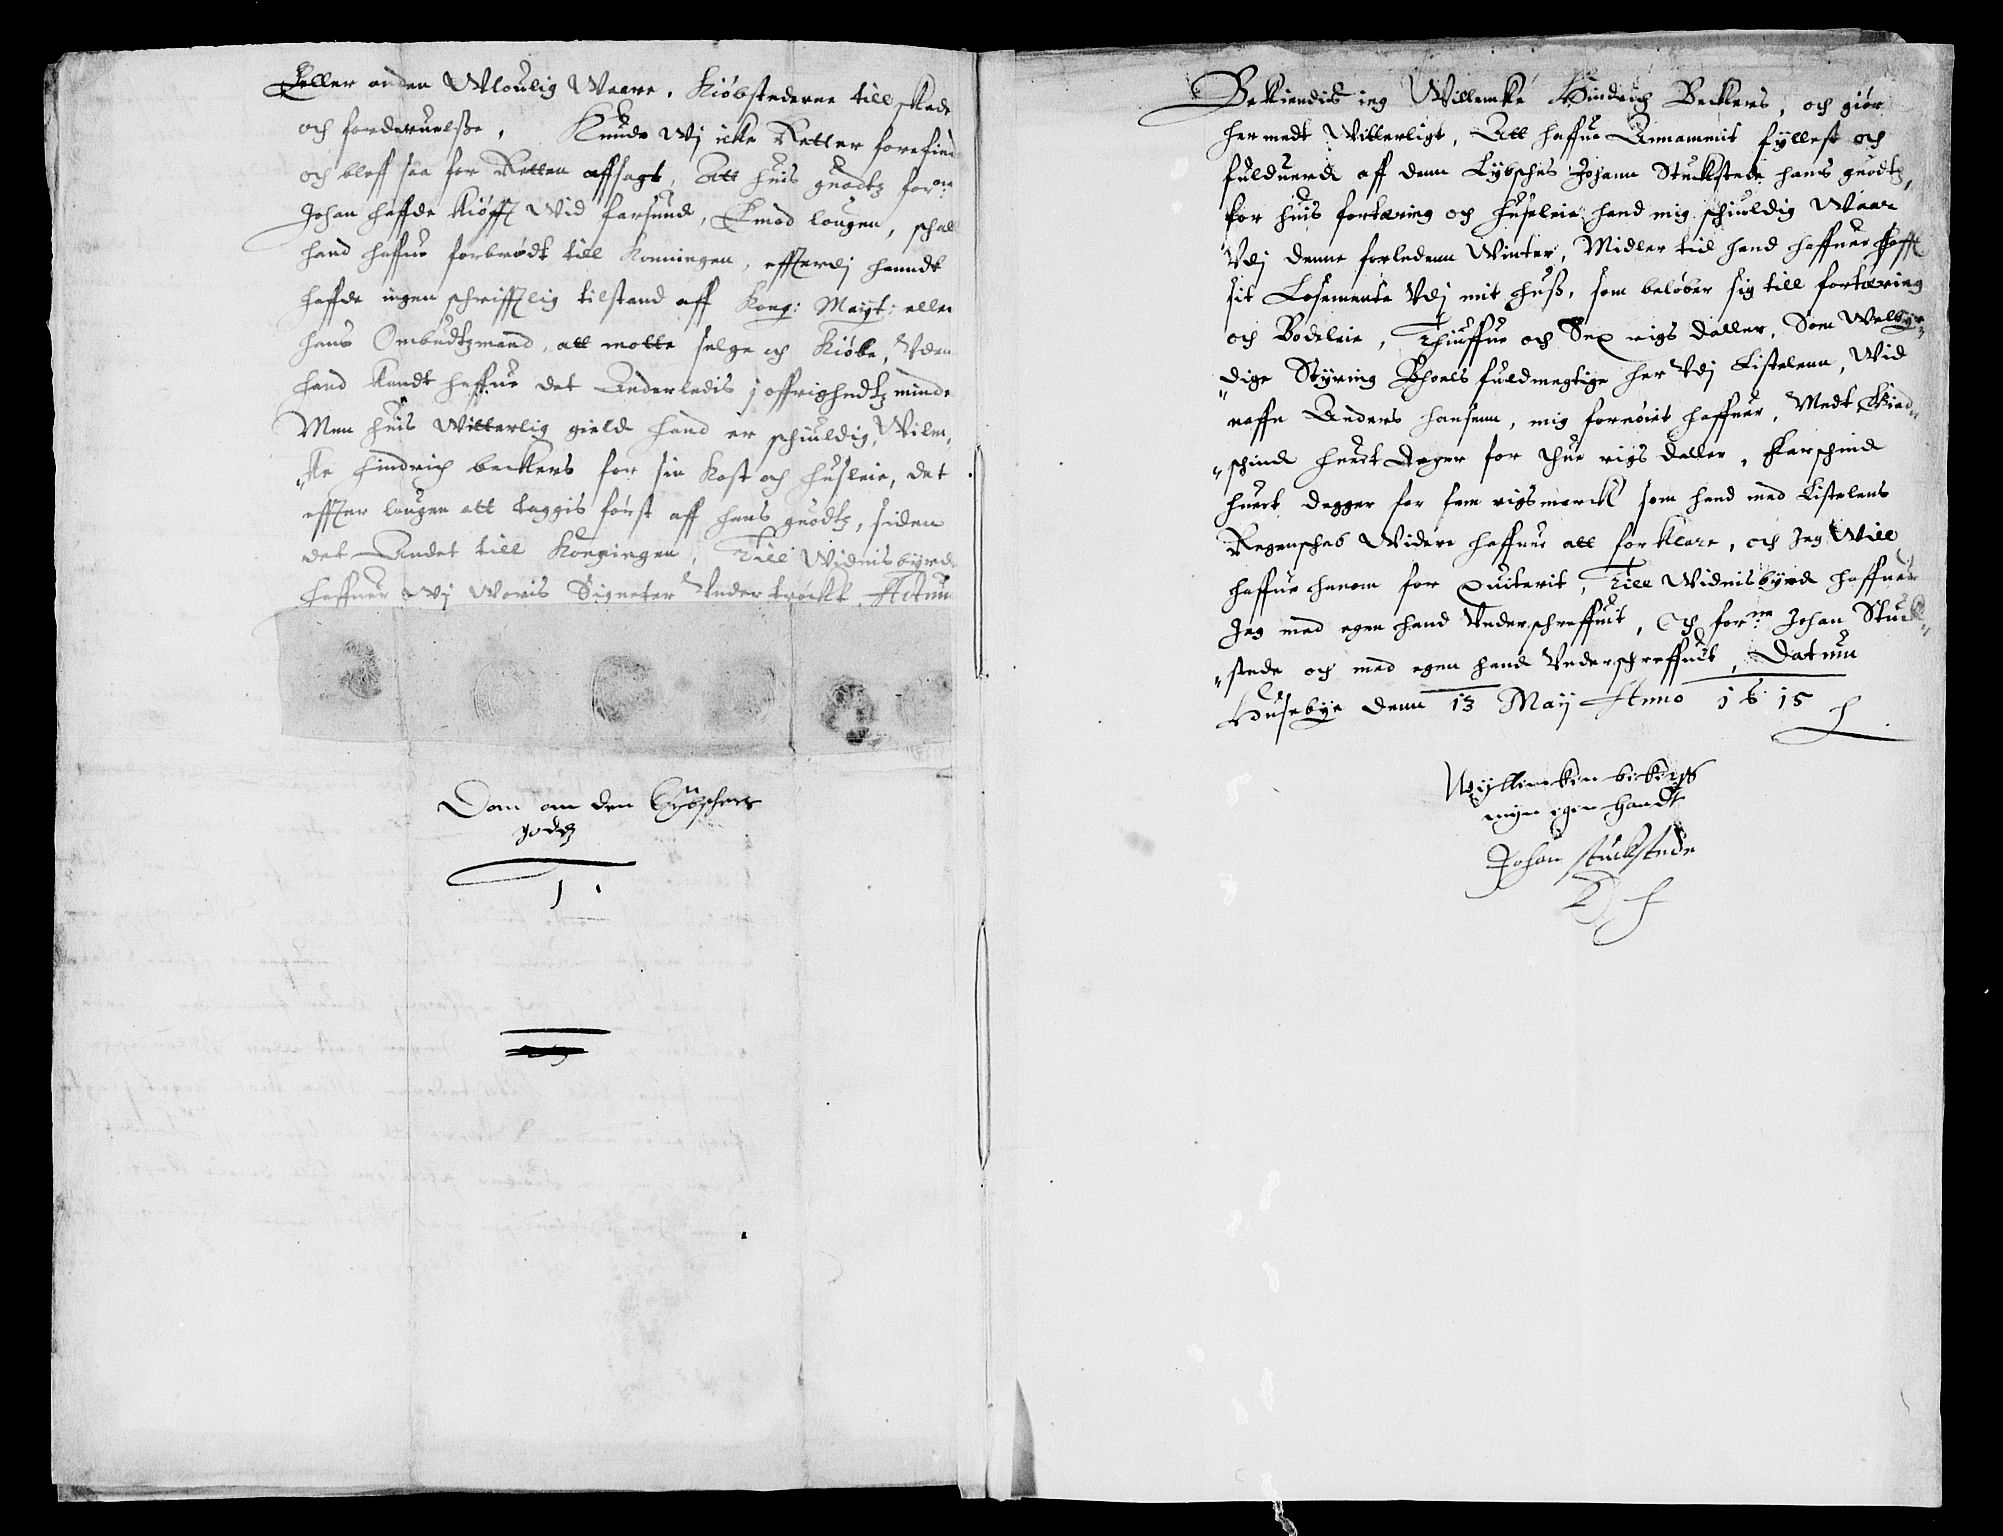 Eeller anden Wloulig Waare, Kiöbstederne till skade
och forderuelsse, Kunde Wj icke Retter forefind
och bleff saa for Retten affsagt, Att huis guodtz forne
Johan haffde kiöfft Wid farsund, Emod lougen, schal
hand haffue forbrödt till Konningen, effterdj hanndt
haffde ingen schrifftlig tilstand aff Kong: Mayt: eller
hans Ombudtzmand, att motte selge och Kiöbe, Vden
hand kandt haffue det Anderledis i offrighedtz minde
Men huis Witterlig gield hand er schiuldig, Wilm,
"ke Hindrich beckers for sin Kost och husleie, det
effter lougen att taggis först aff hans guodtz, siden
det Andet till Konningen, Till Widnisbyrd
haffuer Wj Woris Signeter Vnder tröckt, Actum
Dom om den Lybschers
godtz
Bekiendis ieg Willemke Hindrich Beckers, och giör
her medt Witterligt, Att haffue Annammit fyllest och
fulduerd aff denn Lybsches Johann Stuckstede hans guodtz,
for huis fortæring och husleie hand mig schiuldig Waar
Vdj denne forledenn Winter, Midler tid hand haffuer hafft
sit Losemente Vdj mit huss, som belöber sig till fortæring
och Bodeleie, Thiuffue och Sex rigs daller, Som Welbyr„
"dige Styring Bhoels fuldmegtige her Vdj Listelenn, Wid
naffn Anders Hansenn, mig fornöiet haffuer, Medt Gied„
"schind huert deger for thue rigs daller, Karschind
huert degger for fem rigsmarck som hand med Listelens
Regenschab Widere haffuer att forklare, och Jeg Will
haffue hanom for quiterit, Till Widnisbyrd haffuer
Jeg med egen hand Vnderschreffuit, Och forne Johan Stuck„
"stede och med egen hand Vnderschreffuit, Datum
Husebye denn 13 Maij Anno 1615
Wyllemken beckers
myn egen handt
Johan stuckstede